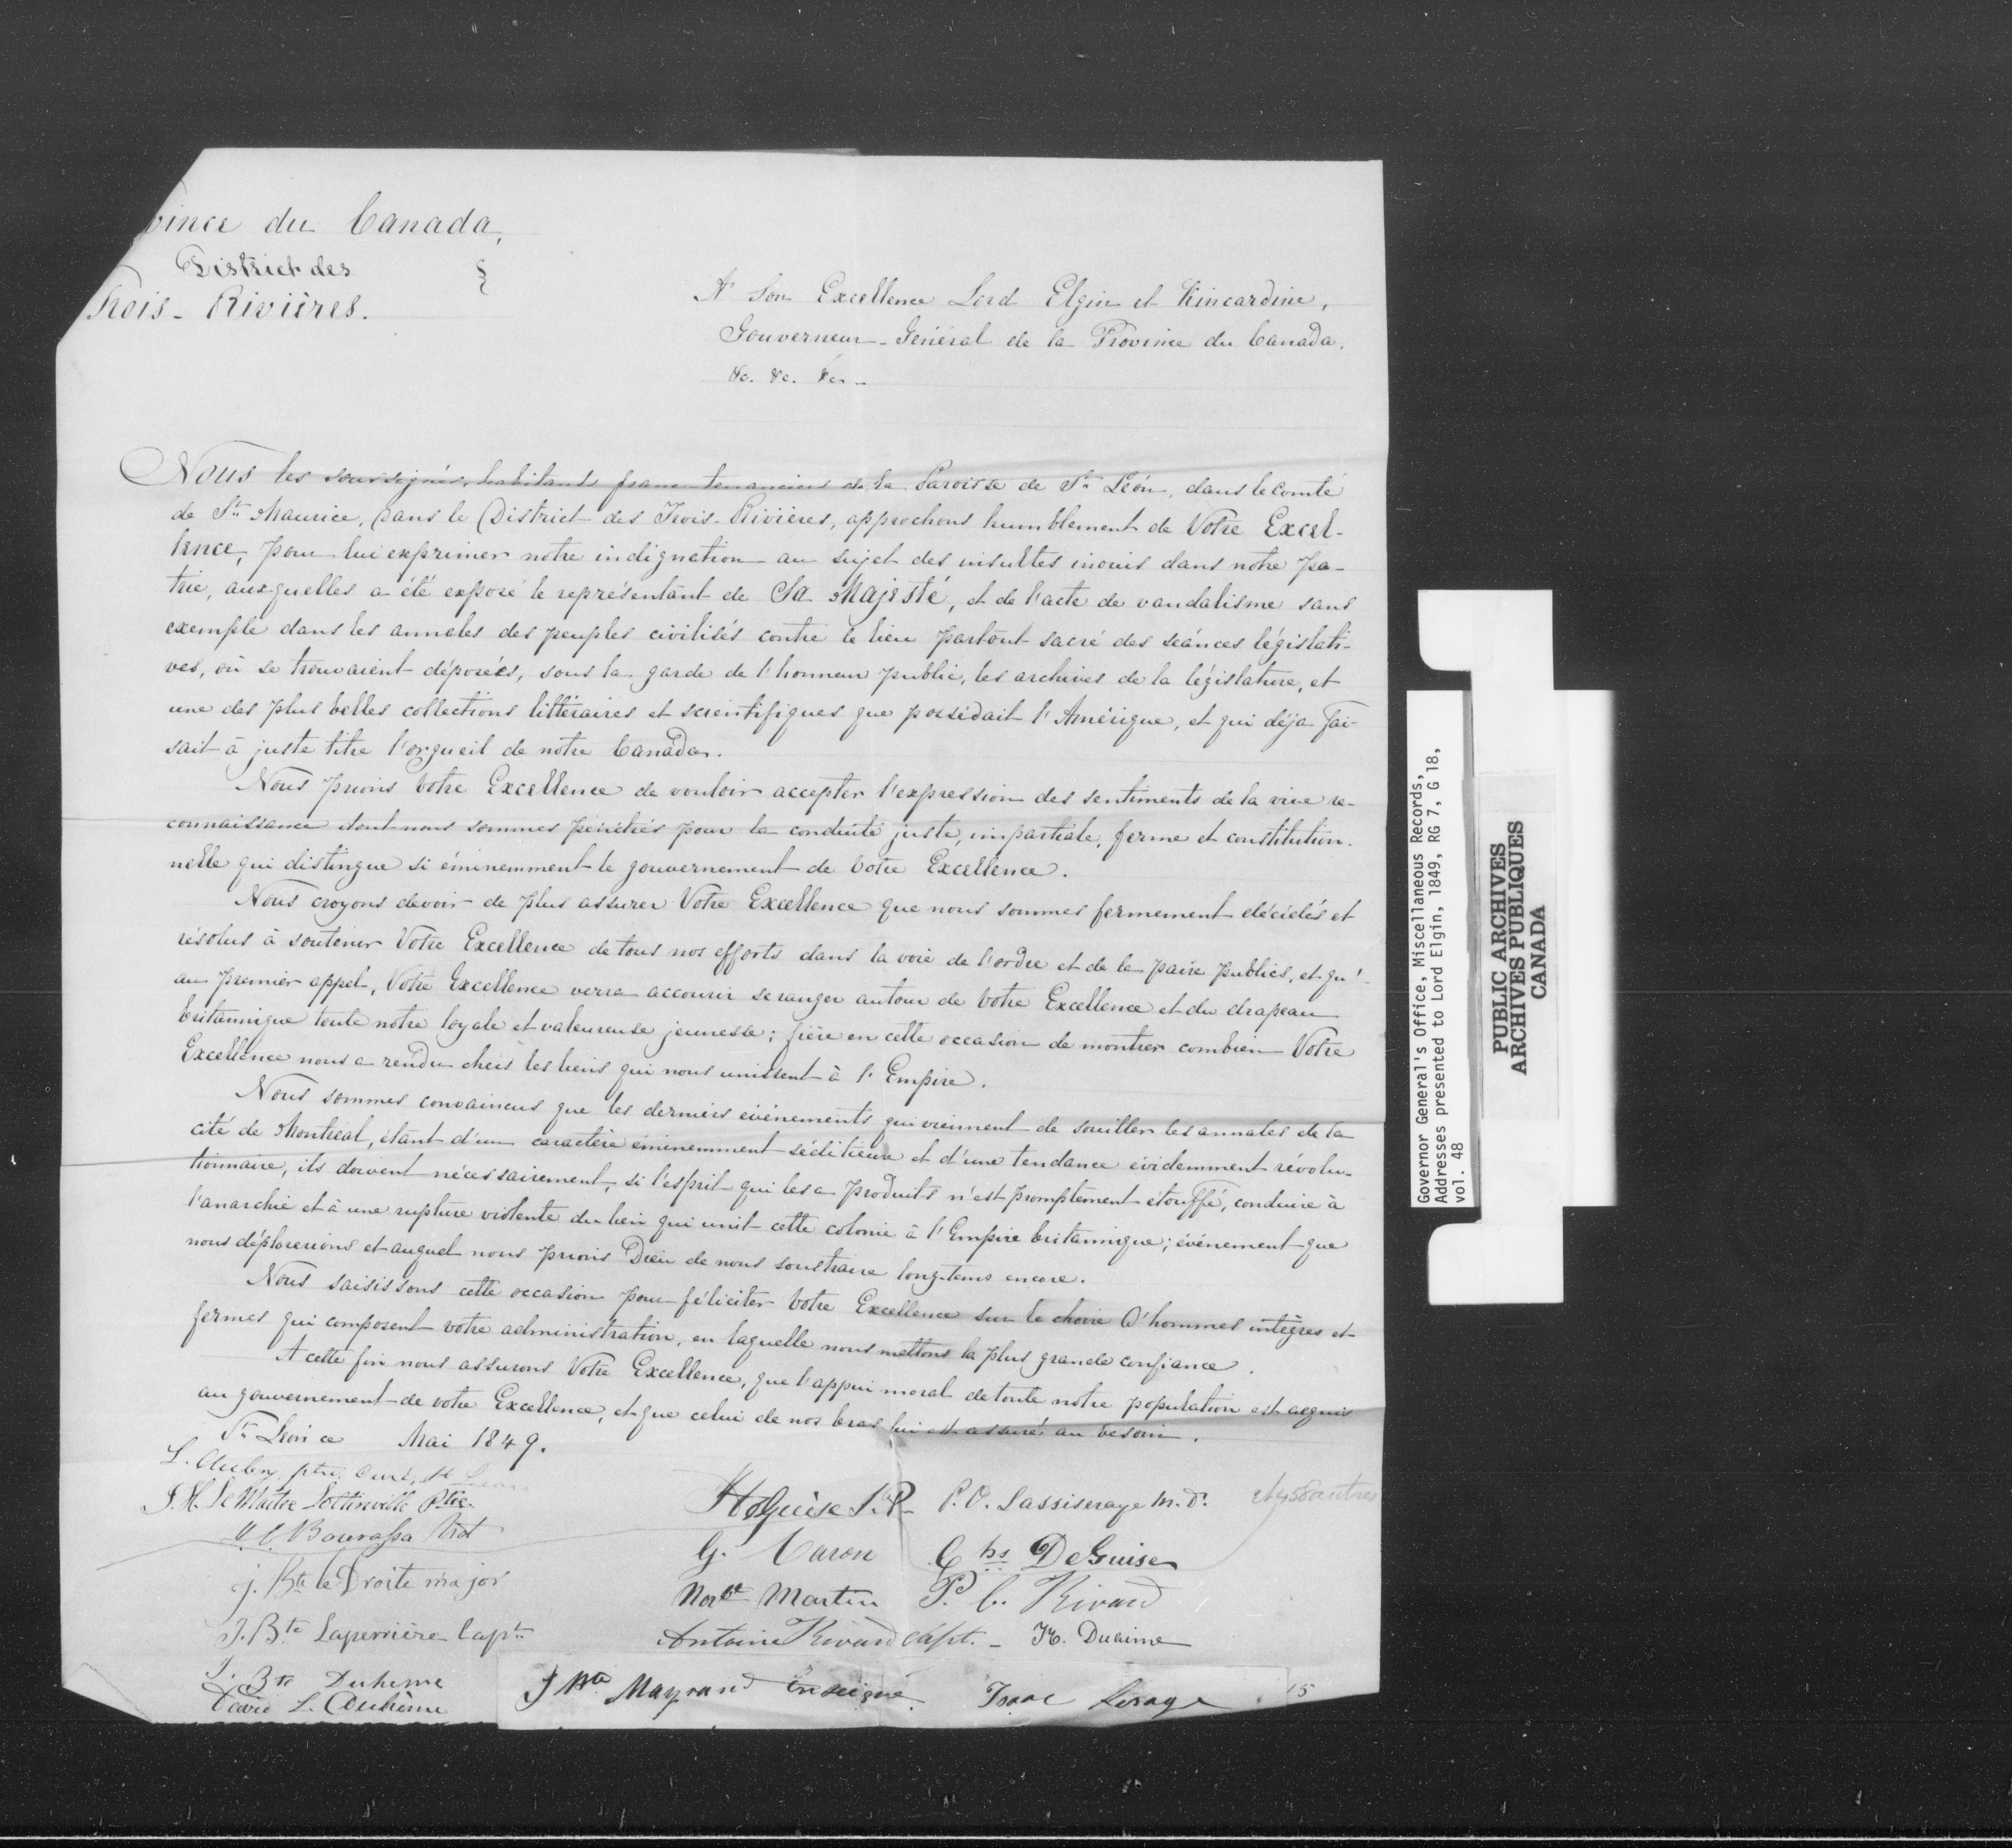 vince du Canada,
District des
Trois-Rivières.
A Son Excellence Lord Elgin et Kincardine,
Gouverneur-Général de la Province du Canada.
&c. &c. &c. -
Nous les soussignés, habitants franc-tenanciers de la Paroisse de St. Léon, dans le Comté
de St. Maurice, dans le District des Trois-Rivières, approchons humblement de Votre Excel-
lence, pour lui exprimer notre indignation au sujet des insultes inouis dans notre pa-
trie, auxquelles a été exposé le représentant de Sa Majesté, et de l'acte de vandalisme sans
exemple dans les annales des peuples civilisés contre le lieu partout sacré des séances législati-
ves, où se trouvaient déposées, sous la garde de l'honneur public, les archives de la législature, et
une des plus belles collections littéraires et scientifiques que possédait l'Amérique, et qui déja fai-
sait à juste titre l'orgueil de notre Canada.
Nous prions Votre Excellence de vouloir accepter l'expression des sentiments de la vive re-
connaissance dont nous sommes pénétrés pour la conduite juste, impartiale, ferme et constitution-
nelle qui distingue si éminemment le gouvernement de Votre Excellence.
Nous croyons devoir de plus assurer Votre Excellence que nous sommes fermement décidés et
résolus à soutenir Votre Excellence de tous nos efforts dans la voie de l'ordre et de la paix publics, et qu'
au premier appel, Votre Excellence verra accourir se ranger autour de Votre Excellence et du drapeau
britannique toute notre loyale et valeureuse jeunesse; fière en cette occasion de montrer combien Votre
Excellence nous a rendu chers les liens qui nous unissent à l'Empire.
Nous sommes convaincus que les derniers événements qui viennent de souiller les annales de la
cité de Montreal, étant d'un caractère éminemment séditieux et d'une tendance évidemment révolu-
tionnaire, ils doivent nécessairement, si l'esprit qui les a produits n'est promptement étouffé, conduire à
l'anarchie et à une rupture violente du lien qui unit cette colonie à l'Empire britannique; événement que
nous déplorerions et auquel nous prions Dieu de nous soustraire long-tems encore.
Nous saisissons cette occasion pour féliciter Votre Excellence sur le choix d'hommes intègres et
fermes qui composent votre administration, en laquelle nous mettons la plus grande confiance.
A cette fin nous assurons Votre Excellence, que l'appui moral de toute notre population est acquis
au gouvernement de votre Excellence, et que celui de nos bras lui est assuré au besoin.
St. Léon ce Mai 1849.
L. Aubry ptre. Curé, St Leon
J. H. LeMaitre Lottinville Ptre.
Bourassa Not
J. Bte le Droite major
J. Bte Laperrière Capt.
J. Bte Duheme
David L. Duhême
DeGuise J.P. P. O. Lassiseraye M.D. et 458 autres
G. Caron Chs DeGuise
Norbt Martin P. C. Rivard
Antoine Rivard Capt. - Ducime
J Bte Mayrand Enseigne Isaac Lesage 15
Governor General's Office, Miscellaneous Records,
Addresses presented to Lord Elgin, 1849, RG 7, G 18,
vol. 48
PUBLIC ARCHIVES
ARCHIVES PUBLIQUES
CANADA